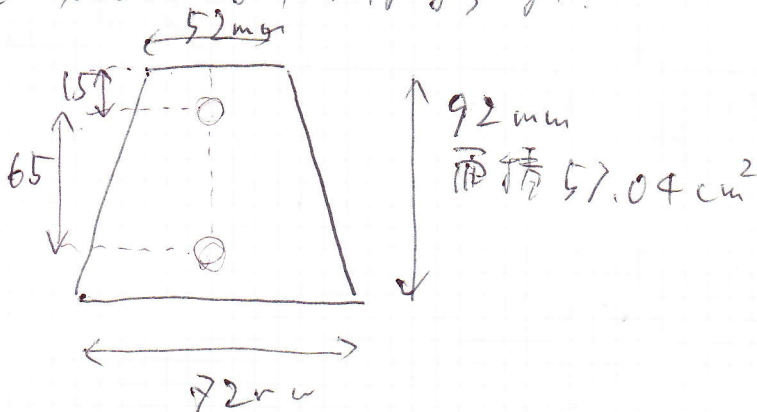 52mm
15
65
92mm
面積 57.04cm²
72mm